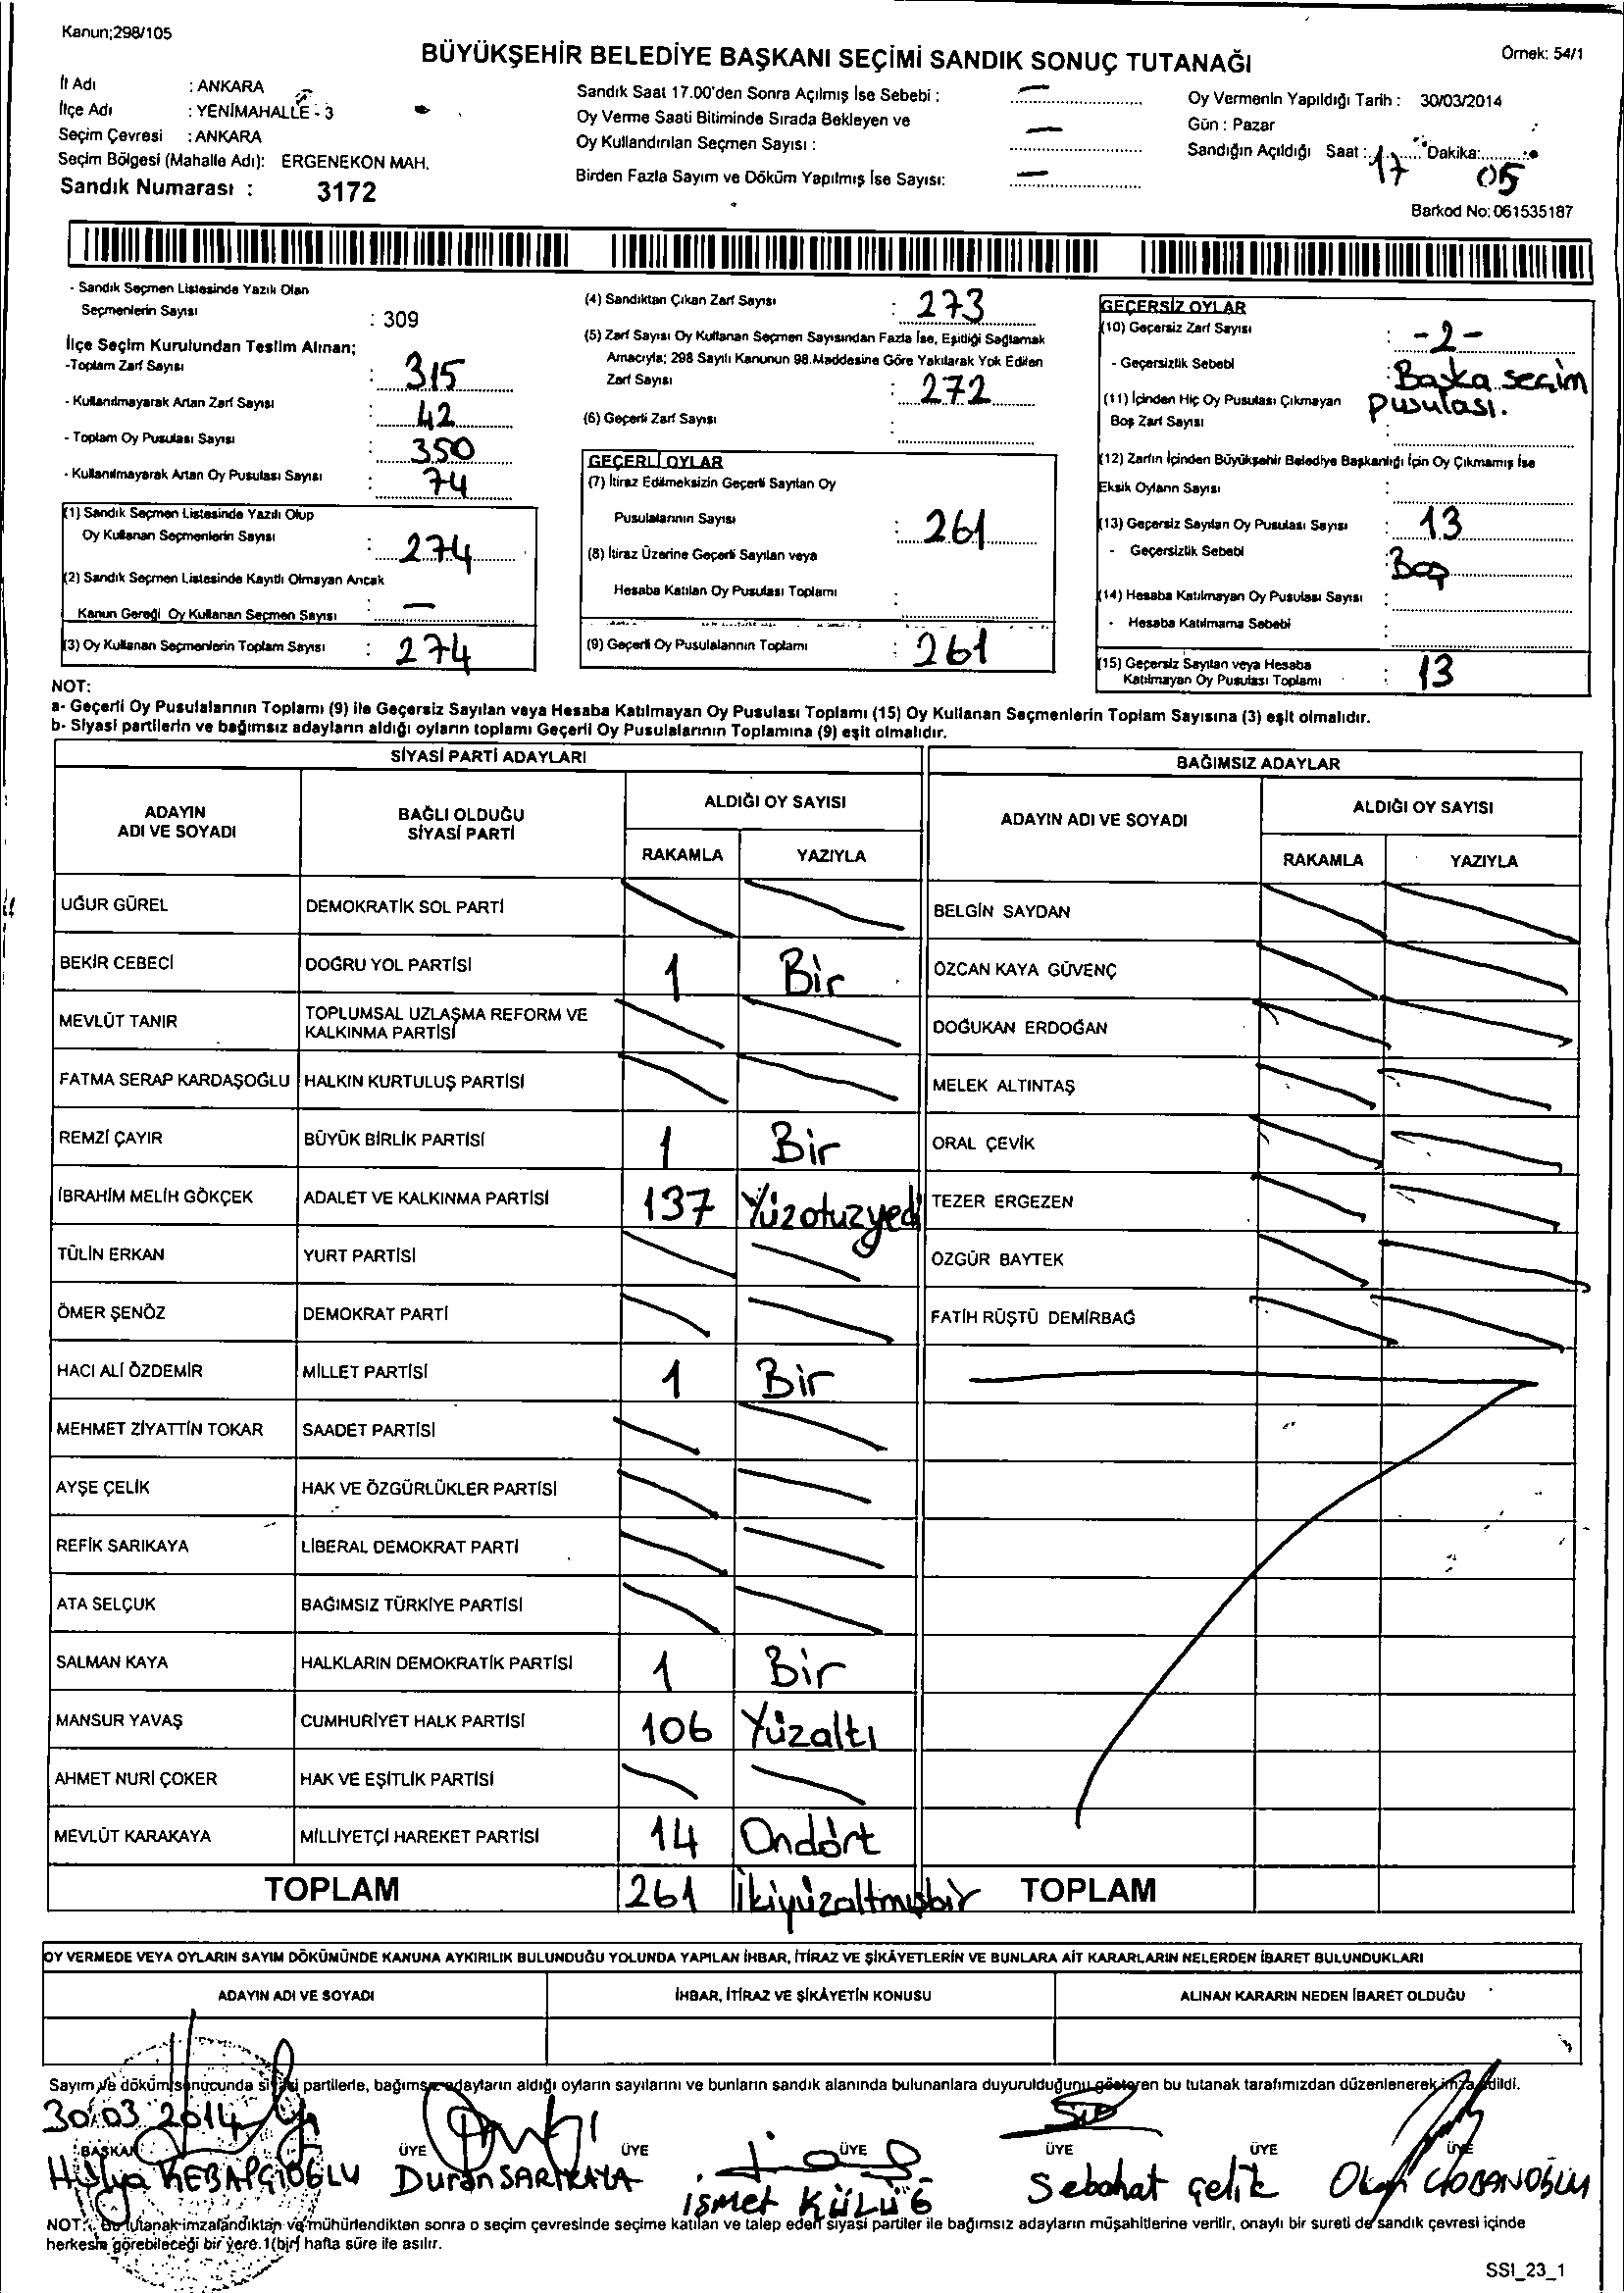 Kanun;298/105
BÜYÜKŞEHİR BELEDİYE BAŞKANI SEÇİMİ SANDIK SONUÇ TUTANAĞI
Örnek: 54/1
İl Adı : ANKARA
İlçe Adı : YENİMAHALLE - 3
Seçim Çevresi : ANKARA
Seçim Bölgesi (Mahalle Adı): ERGENEKON MAH.
Sandık Numarası : 3172
Sandık Saat 17.00'den Sonra Açılmış İse Sebebi : —
Oy Verme Saati Bitiminde Sırada Bekleyen ve
Oy Kullandırılan Seçmen Sayısı : —
Birden Fazla Sayım ve Döküm Yapılmış İse Sayısı: —
Oy Vermenin Yapıldığı Tarih : 30/03/2014
Gün : Pazar
Sandığın Açıldığı Saat : 17 Dakika: 05
Barkod No: 061535187
- Sandık Seçmen Listesinde Yazılı Olan
Seçmenlerin Sayısı : 309
İlçe Seçim Kurulundan Teslim Alınan;
-Toplam Zarf Sayısı : 315
- Kullanılmayarak Artan Zarf Sayısı : 42
- Toplam Oy Pusulası Sayısı : 350
- Kullanılmayarak Artan Oy Pusulası Sayısı : 74
(1) Sandık Seçmen Listesinde Yazılı Olup
Oy Kullanan Seçmenlerin Sayısı : 274
(2) Sandık Seçmen Listesinde Kayıtlı Olmayan Ancak
Kanun Gereği Oy Kullanan Seçmen Sayısı : —
(3) Oy Kullanan Seçmenlerin Toplam Sayısı : 274
(4) Sandıktan Çıkan Zarf Sayısı : 273
(5) Zarf Sayısı Oy Kullanan Seçmen Sayısından Fazla İse, Eşitliği Sağlamak
Amacıyla; 298 Sayılı Kanunun 98.Maddesine Göre Yakılarak Yok Edilen
Zarf Sayısı : 272
(6) Geçerli Zarf Sayısı :
GEÇERLİ OYLAR
(7) İtiraz Edilmeksizin Geçerli Sayılan Oy
Pusulalarının Sayısı : 261
(8) İtiraz Üzerine Geçerli Sayılan veya
Hesaba Katılan Oy Pusulası Toplamı :
(9) Geçerli Oy Pusulalarının Toplamı : 261
GEÇERSİZ OYLAR
(10) Geçersiz Zarf Sayısı : -2-
- Geçersizlik Sebebi : Başka seçim
pusulası.
(11) İçinden Hiç Oy Pusulası Çıkmayan
Boş Zarf Sayısı :
(12) Zarfın İçinden Büyükşehir Belediye Başkanlığı İçin Oy Çıkmamış İse
Eksik Oyların Sayısı :
(13) Geçersiz Sayılan Oy Pusulası Sayısı : 13
- Geçersizlik Sebebi : Boş
(14) Hesaba Katılmayan Oy Pusulası Sayısı :
- Hesaba Katılmama Sebebi :
(15) Geçersiz Sayılan veya Hesaba
Katılmayan Oy Pusulası Toplamı : 13
NOT:
a- Geçerli Oy Pusulalarının Toplamı (9) ile Geçersiz Sayılan veya Hesaba Katılmayan Oy Pusulası Toplamı (15) Oy Kullanan Seçmenlerin Toplam Sayısına (3) eşit olmalıdır.
b- Siyasi partilerin ve bağımsız adayların aldığı oyların toplamı Geçerli Oy Pusulalarının Toplamına (9) eşit olmalıdır.
SİYASİ PARTİ ADAYLARI
ADAYIN ADI VE SOYADI
BAĞLI OLDUĞU SİYASİ PARTİ
ALDIĞI OY SAYISI
RAKAMLA YAZIYLA
UĞUR GÜREL DEMOKRATİK SOL PARTİ
BEKİR CEBECİ DOĞRU YOL PARTİSİ 1 Bir
MEVLÜT TANIR TOPLUMSAL UZLAŞMA REFORM VE
KALKINMA PARTİSİ
FATMA SERAP KARDAŞOĞLU HALKIN KURTULUŞ PARTİSİ
REMZİ ÇAYIR BÜYÜK BİRLİK PARTİSİ 1 Bir
İBRAHİM MELİH GÖKÇEK ADALET VE KALKINMA PARTİSİ 137 Yüzotuzyedi
TÜLİN ERKAN YURT PARTİSİ
ÖMER ŞENÖZ DEMOKRAT PARTİ
HACI ALİ ÖZDEMİR MİLLET PARTİSİ 1 Bir
MEHMET ZİYATTİN TOKAR SAADET PARTİSİ
AYŞE ÇELİK HAK VE ÖZGÜRLÜKLER PARTİSİ
REFİK SARIKAYA LİBERAL DEMOKRAT PARTİ
ATA SELÇUK BAĞIMSIZ TÜRKİYE PARTİSİ
SALMAN KAYA HALKLARIN DEMOKRATİK PARTİSİ 1 Bir
MANSUR YAVAŞ CUMHURİYET HALK PARTİSİ 106 Yüzaltı
AHMET NURİ ÇOKER HAK VE EŞİTLİK PARTİSİ
MEVLÜT KARAKAYA MİLLİYETÇİ HAREKET PARTİSİ 14 Ondört
TOPLAM 261 İkiyüzaltmışbir
BAĞIMSIZ ADAYLAR
ADAYIN ADI VE SOYADI
ALDIĞI OY SAYISI
RAKAMLA YAZIYLA
BELGİN SAYDAN
ÖZCAN KAYA GÜVENÇ
DOĞUKAN ERDOĞAN
MELEK ALTINTAŞ
ORAL ÇEVİK
TEZER ERGEZEN
ÖZGÜR BAYTEK
FATİH RÜŞTÜ DEMİRBAĞ
TOPLAM
OY VERMEDE VEYA OYLARIN SAYIM DÖKÜMÜNDE KANUNA AYKIRILIK BULUNDUĞU YOLUNDA YAPILAN İHBAR, İTİRAZ VE ŞİKÂYETLERİN VE BUNLARA AİT KARARLARIN NELERDEN İBARET BULUNDUKLARI
ADAYIN ADI VE SOYADI
İHBAR, İTİRAZ VE ŞİKÂYETİN KONUSU
ALINAN KARARIN NEDEN İBARET OLDUĞU
Sayım ve döküm sonucunda siyasi partilerle, bağımsız adayların aldığı oyların sayılarını ve bunların sandık alanında bulunanlara duyurulduğunu gösteren bu tutanak tarafımızdan düzenlenerek imza edildi.
30.03.2014
BAŞKAN ÜYE ÜYE ÜYE ÜYE ÜYE ÜYE
Hülya KEBAPÇIOĞLU Duran SARIKAYA İsmet KÜLÜG Sebahat Çelik ÇOBANOĞLU
NOT: Bu tutanak imzalandıktan ve mühürlendikten sonra o seçim çevresinde seçime katılan ve talep eden siyasi partiler ile bağımsız adayların müşahitlerine verilir, onaylı bir sureti de sandık çevresi içinde
herkesin görebileceği bir yere 1(bir) hafta süre ile asılır.
SSI_23_1